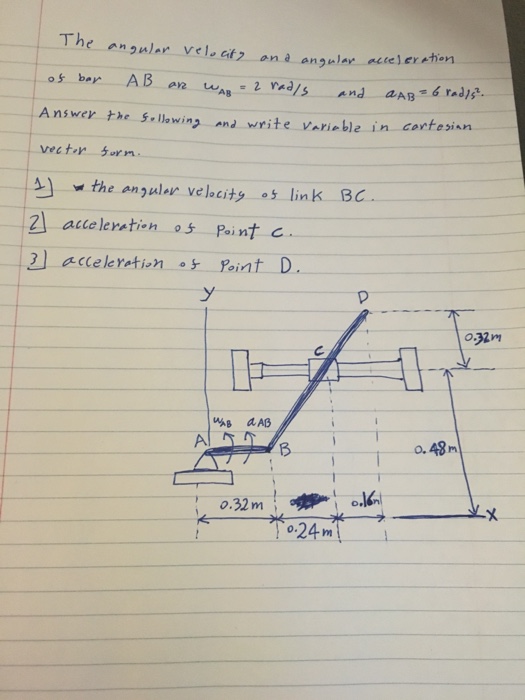 The angular velocity and angular acceleration
of bar AB are ω_AB = 2 rad/s and α_AB = 6 rad/s².
Answer the following and write variable in cartesian
vector form.
1] the angular velocity of link BC.
2] acceleration of point C.
3] acceleration of Point D.
y
D
0.32m
C
ω_AB α_AB
A
B
0.48m
0.32m
0.16m
0.24m
X